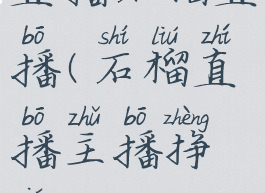 bō shí liú zhí
播(石榴直
bō zhǔ bō zhèng
播主播挣